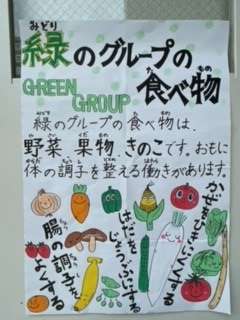 みどり
緑のグループの
GREEN GROUP
食べ物
緑のグループの食べ物は、
野菜、果物、きのこです。おもに
体の調子を整える働きがあります。
かぜをひきにくくする
はだをじょうぶにする
腸の調子をよくする